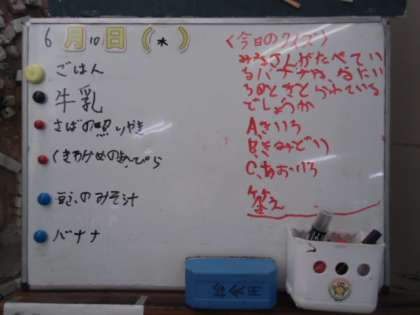 6月10日(水)
ごはん
牛乳
さばの照りやき
くきわかめのきんぴら
豆ふのみそ汁
バナナ
〈今日のクイズ〉
みなさんがたべてい
るバナナは、なんい
ろのときとられている
でしょうか
A、きいろ
B、きみどり
C、あおいろ
答え
給食用